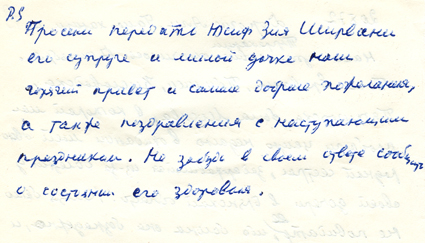 P.S
Просим передать Юсиф Зия Ширвани
его супруге и милой дочке наш
горячий привет и самые добрые пожелания,
а также поздравления с наступающим
праздником. Не забудь в своем ответе сообщить
о состоянии его здоровья.